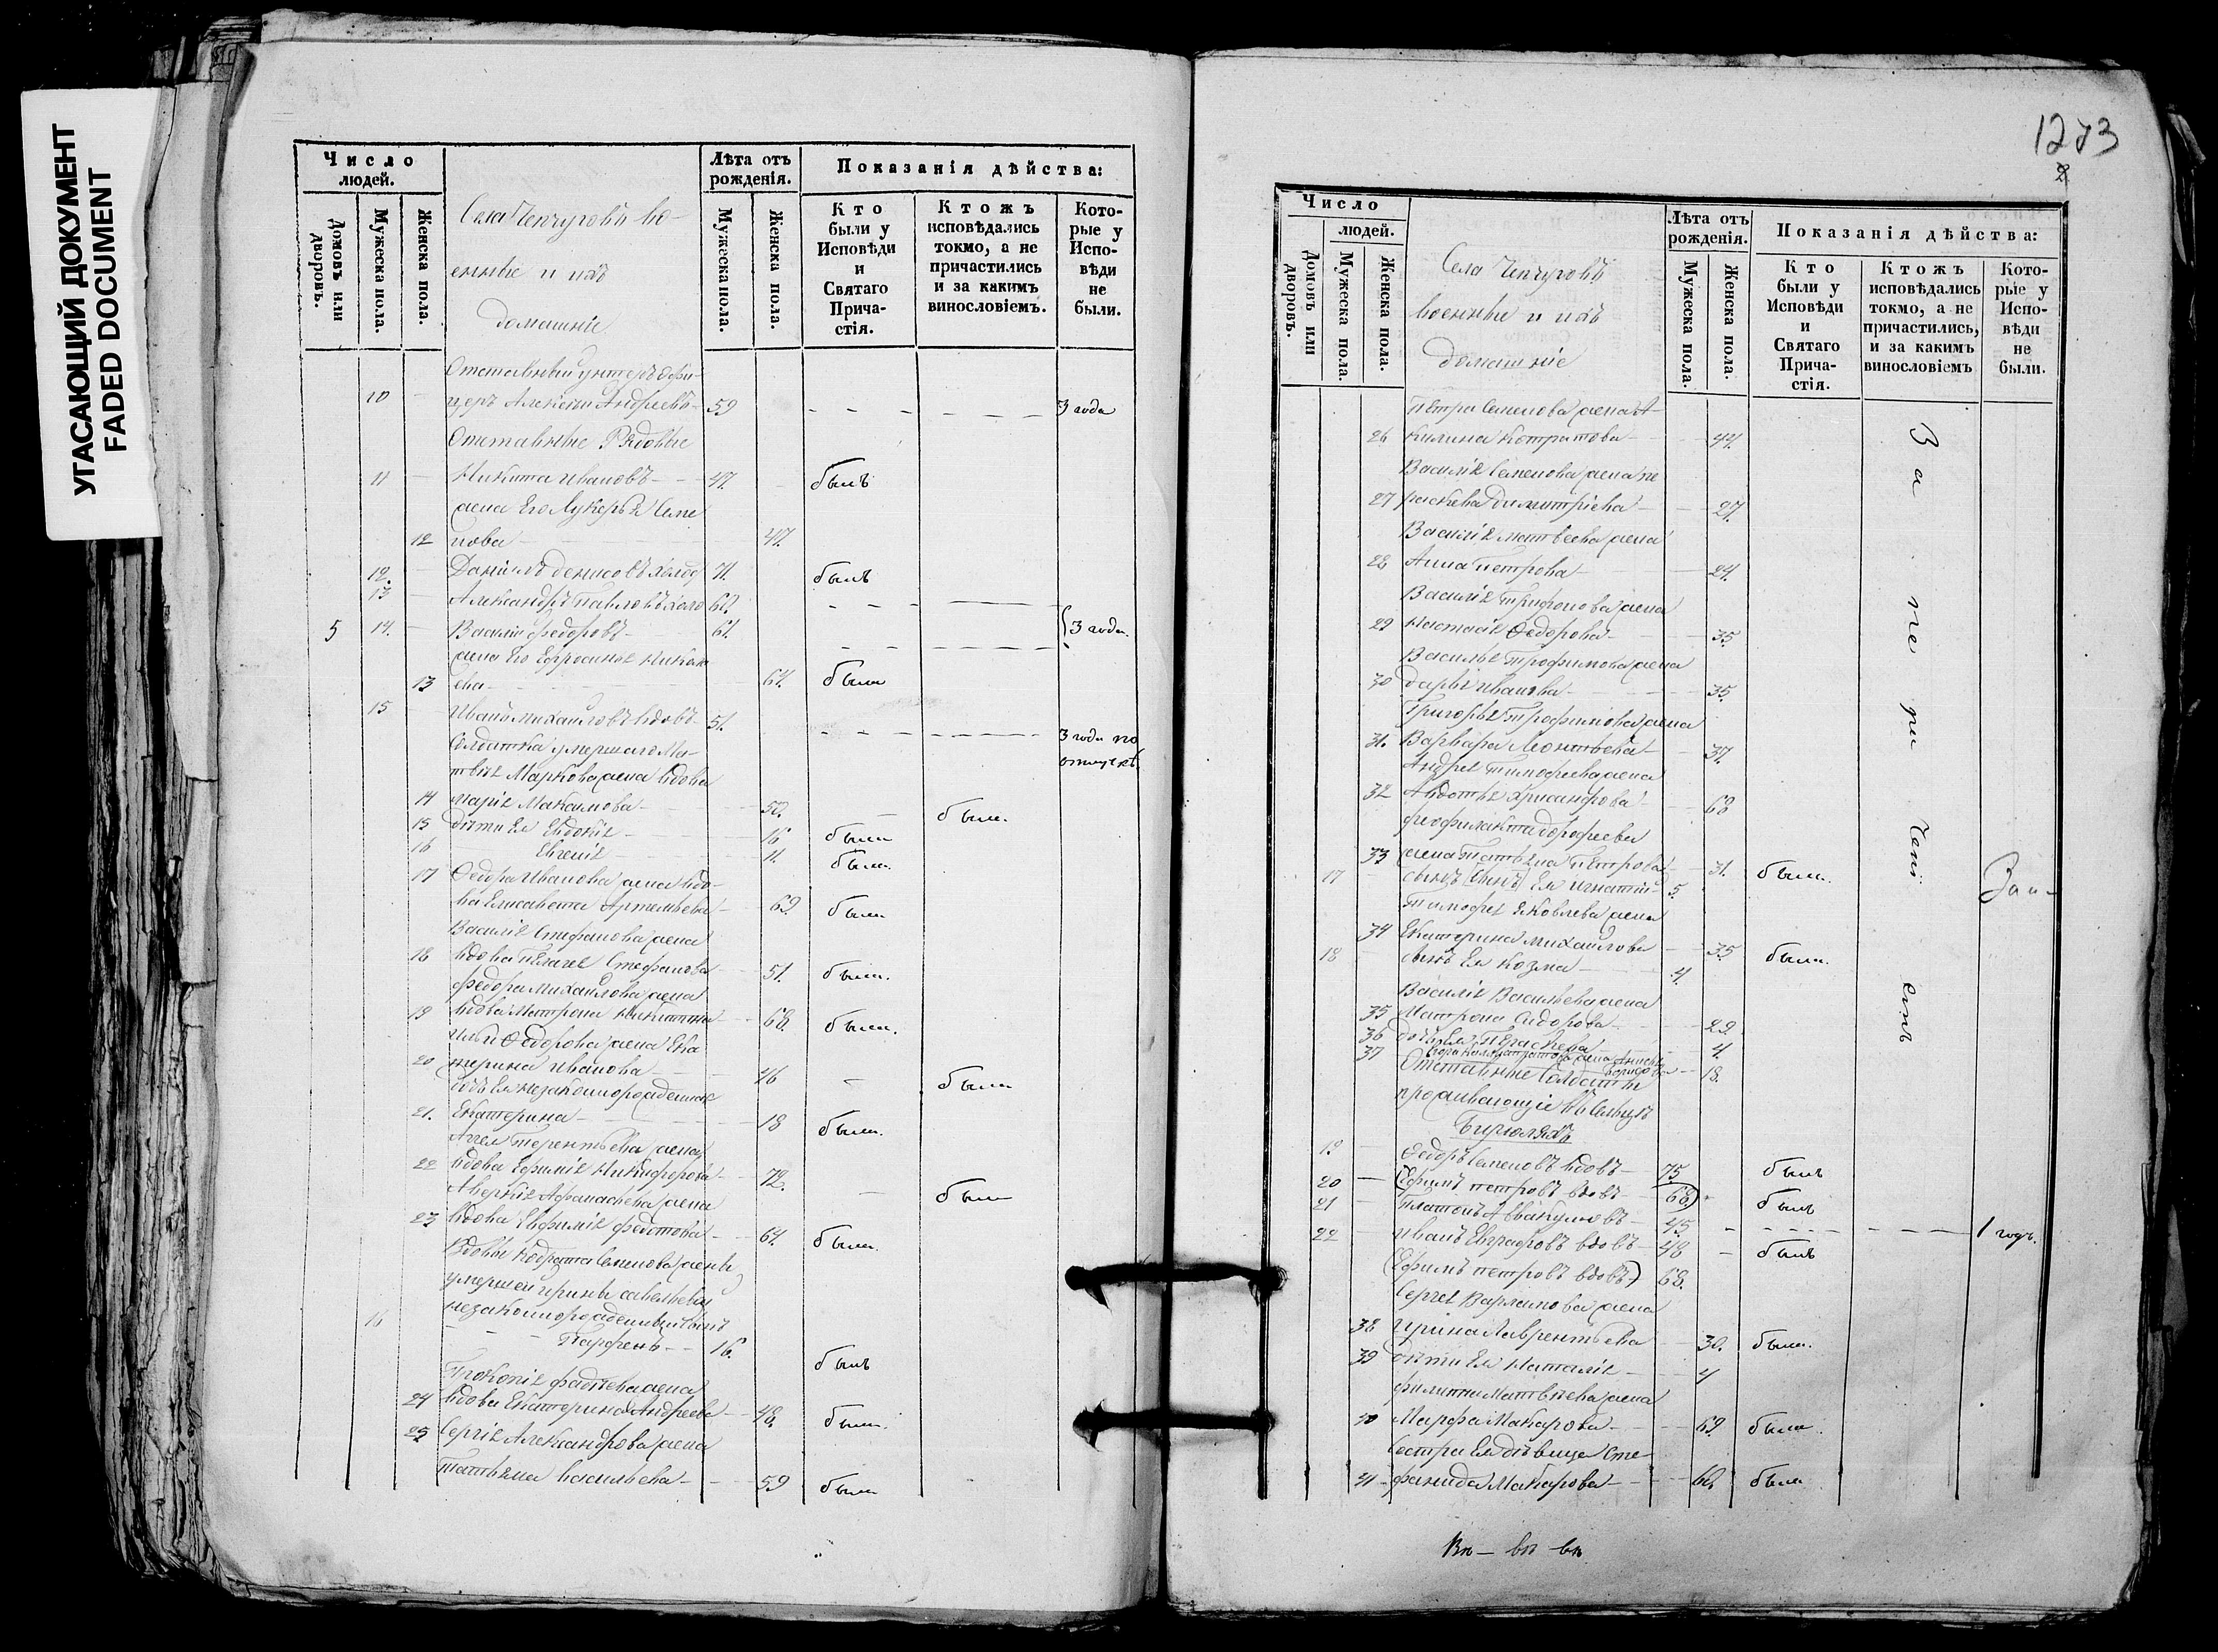 УГАСАЮЩИЙ ДОКУМЕНТ
FADED DOCUMENT
Число людей.
Домовъ или дворовъ.
Мужеска пола.
Женска пола.
Села Чепчуговъ во-
енные и ихъ
домашніе
Лѣта отъ рожденія.
Мужеска пола.
Женска пола.
Показанія дѣйства:
Кто были у Исповѣди и Святаго Прича-стія.
Ктожъ исповѣдались токмо, а не причастились и за какимъ винословіемъ.
Кото-рые у Испо-вѣди не были.
Отставный унтеръ офи-
10 — церъ Алексѣй Андреевъ — 59 3 года
Отставные Рядовые
11 — Никита Ивановъ — 47. былъ
жена Его Лукерья Семе
12 нова — 47.
12. Даніилъ Денисовъ холос 71. былъ
13 — Александръ Павловъ холо 62.
5 14. — Василій Федоровъ — 61. 3 года.
жена Его Ефросинья Никола
13 ева — 64. была
15 — Иванъ Михайловъ вдовъ — 51. 3 года по
Солдатка умершаго Ма-
отпуску.
твѣя Маркова жена вдова
14 Марія Максимова — 50. — была.
15 дѣти Ея Евдокія — 16 была
16 Евгенія — 11. была.
17 Ѳедора Иванова жена вдо-
ва Елисавета Артемьева — 69. была
Василія Стефанова жена
18 вдова Пелагея Стефанова — 51. была.
Федора Михайлова жена
19 вдова Матрона Никитина — 68. была.
Ильи Ѳедорова жена Ека
20 терина Иванова — 46 — была
дочь Ея незаконнорожденная
21. Екатерина — 18 была.
Аггея Терентьева жена
22 вдова Ефимія Никифорова — 72. — была
Аверкія Афанасьева жена
23 вдова Евфимія Федотова — 64. была.
Вдовы Кодрата Семенова жены
умершей Ирины Савельевой
незаконнорожденный сынъ
16 — — — Парфенъ — — 16. былъ
Прокопія Фадѣева жена
24 вдова Екатерина Андреева — 48. была.
25 Сергія Александрова жена
Татьяна Васильева — 59 была
1273
2
Число людей.
Домовъ или дворовъ.
Мужеска пола.
Женска пола.
Села Чепчуговъ
военные и ихъ
домашніе
Лѣта отъ рожденія.
Мужеска пола.
Женска пола.
Показанія дѣйства:
Кто были у Исповѣди и Святаго Прича-стія.
Ктожъ исповѣдались токмо, а не причастились, и за какимъ винословіемъ
Кото-рые у Испо-вѣди не были.
Петра Семенова жена А-
26 килина Котратова — 44.
Василія Семенова жена Пе
27 раскева Димитріева — 27.
Василія Матвеева жена
28 Анна Петрова — 24.
Василія Трифонова жена
29 Настасія Ѳедорова — 35.
Василья Трофимова жена
30 Дарья Иванова — 35.
Григорья Трофимова жена
31. Варвара Леонтьева — 37.
Андрея Тимофеева жена
32 Авдотья Хрисанфова — 62
Феофилакта Дорофеева
33 жена Татьяна Петрова — 31. была.
17 сынъ (сынъ) Ея Игнатій — 5.
Тимофея Яковлева жена
34 Екатерина Михайлова — 35 была.
18 — сынъ Ея Козма — 4.
Василія Васильева жена
35 Матрона Сидорова — 29.
36 дочь Ея Параскева — 4.
37 жена 18.
Отставные Солдаты
проживающіе въ Сельцѣ
Бирюляхъ
19 — Ѳедоръ Семеновъ вдовъ — 75. былъ
20 — (Ефимъ Петровъ вдовъ — 68) былъ
21 — Платонъ Аввакумовъ — 45. 1 годъ.
22 — Иванъ Евграфовъ вдовъ — 48 — былъ
(Ефимъ Петровъ вдовъ) 68.
Сергея Варламова жена
38 Ирина Лаврентьева — 30. была.
39 дѣти Ея Наталія — 4
Филиппа Матвѣева жена
40 Марфа Макарова — 69. была.
Сестра Ея дѣвица Сте-
41 — фанида Макарова — 60. была
За не ри тені емъ
Заи-
Вѣ — вѣ вѣ